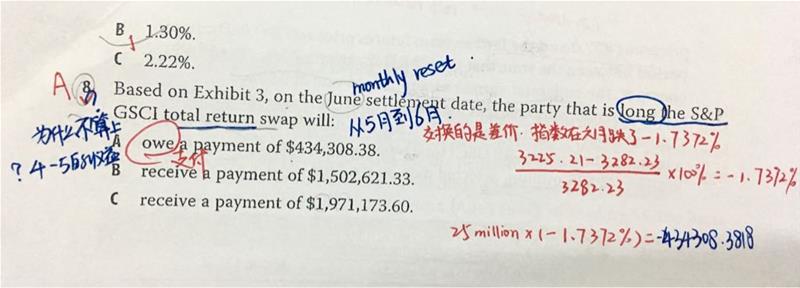 B 1.30%.
C 2.22%.
monthly reset
A 8 Based on Exhibit 3, on the June settlement date, the party that is long the S&P
GSCI total return swap will: 从5月到6月.
为什么不算上
? 4-5的收益
交换的是差价. 指数在六月跌了-1.7372%
A owe a payment of $434,308.38.
支付
3225.21-3282.23
3282.23
×100% = -1.7372%
B receive a payment of $1,502,621.33.
C receive a payment of $1,971,173.60.
25 million × (-1.7372%) = -434308.3818